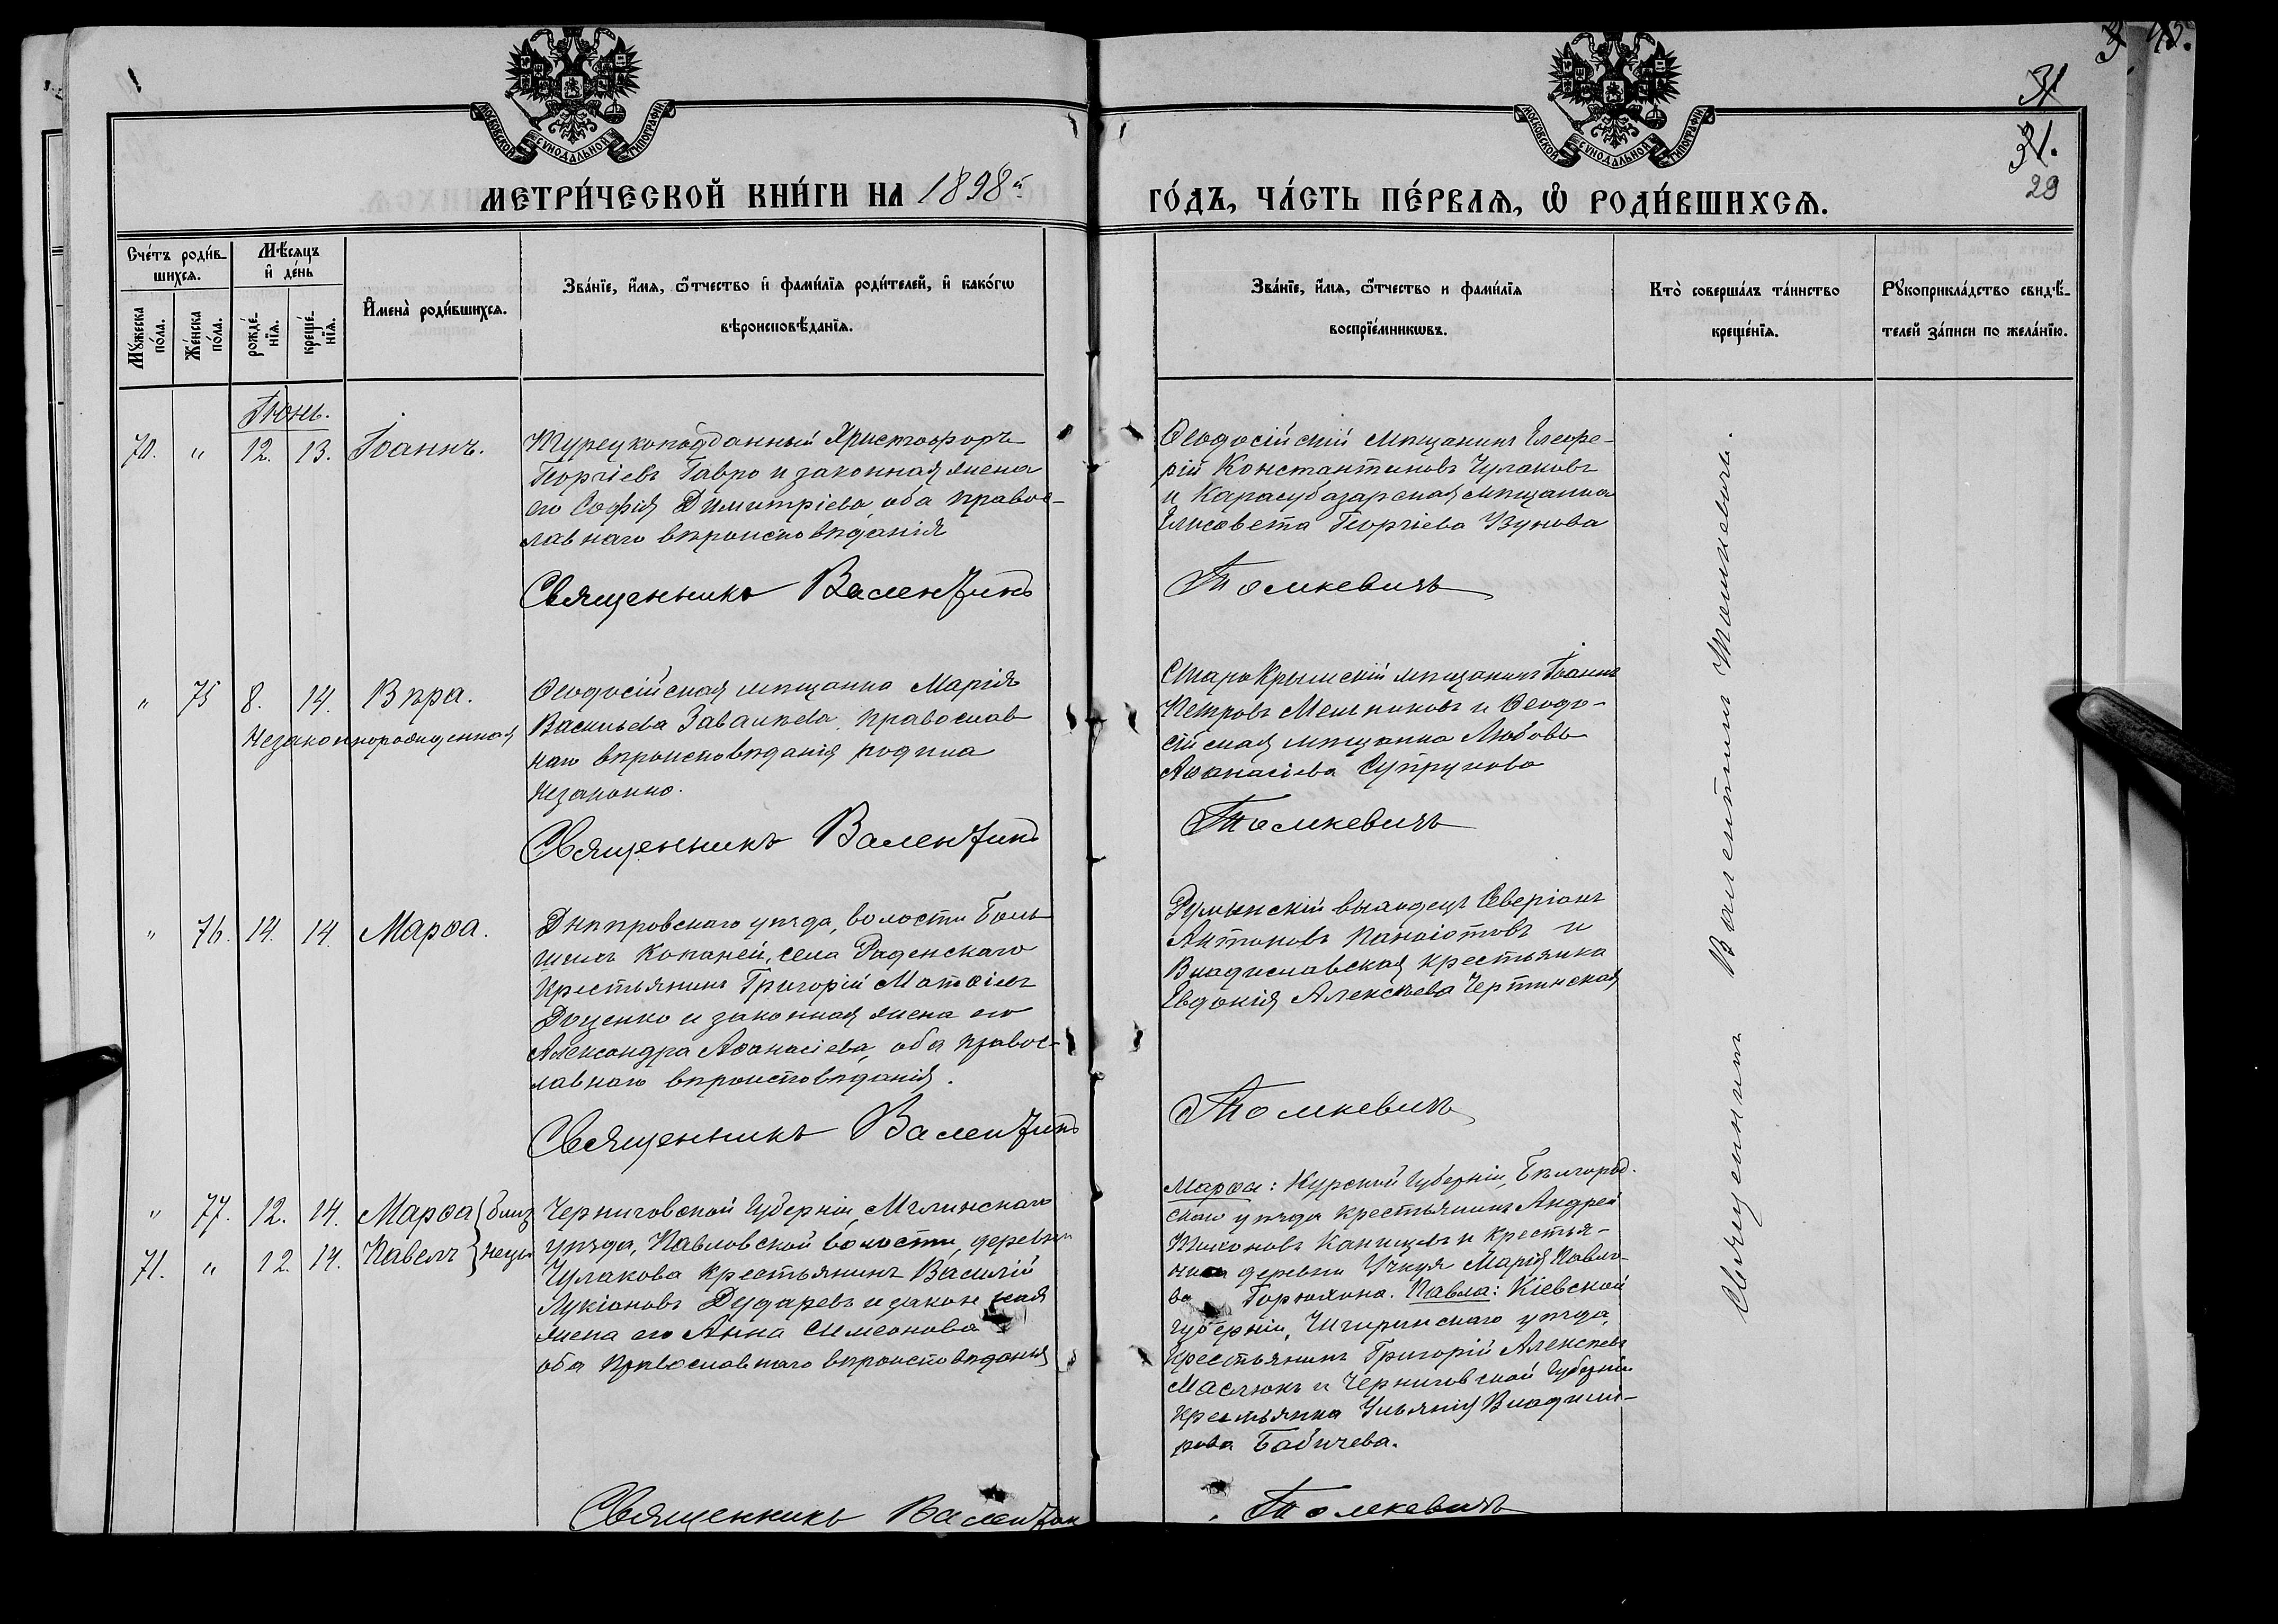 МОСКОВСКОЙ СѴНОДАЛЬНОЙ ТИПОГРАФІИ
МОСКОВСКОЙ СѴНОДАЛЬНОЙ ТИПОГРАФІИ
31
31.
29
МЕТРИ́ЧЕСКОЙ КНИ́ГИ НА 1898й
ГО́ДЪ, ЧА́СТЬ ПЕ́РВАѦ, Ѡ҆ РОДИ́ВШИХСѦ.
Сче́тъ роди́в-
шихсѧ.
Мꙋ́жеска по́ла.
Же́нска по́ла.
Мѣ́сѧцъ
и҆ де́нь
рожде́-
нїѧ.
креще́-
нїѧ.
И҆мена̀ роди́вшихсѧ.
Зва́нїе, и҆́мѧ, ѻ҆́тчество и҆ фами́лїѧ роди́телей, и҆ како́гѡ
вѣроисповѣ́данїѧ.
Зва́нїе, и҆́мѧ, ѻ҆́тчество и фами́лїѧ
воспрїе́мникѡвъ.
Кто̀ соверша́лъ та́инство
креще́нїѧ.
Рꙋкоприкла́дство свидѣ́-
телей за́писи по жела́нїю.
Іюнь.
70. " 12. 13. Іоаннъ.
Турецкоподданный Христофоръ
Георгіевъ Гавро и законная жена
его Софія Димитріева, оба правос-
лавнаго вѣроисповѣданія
Священникъ Валентинъ
Ѳеодосійскій мѣщанинъ Елефе-
рій Константиновъ Чулаковъ
и Карасубазарская мѣщанка
Елисавета Георгіева Узунова
Томкевичъ
" 75 8. 14. Вѣра.
Незаконнорожденная
Ѳеодосійская мѣщанка Марія
Васильева Завалиева, православ
наго вѣроисповѣданія родила
незаконно.
Священникъ Валентинъ
Старокрымскій мѣщанинъ Іоаннъ
Петровъ Мельниковъ и Ѳеодо-
сійская мѣщанка Любовь
Аѳанасіева Супрунова
Томкевичъ
" 76. 14. 14. Марѳа.
Днѣпровскаго уѣзда, волости Боль
шихъ Копаней, села Раденскаго
крестьянинъ Григорій Матѳіевъ
Доценко и законная жена его
Александра Аѳанасіева, оба правос-
лавнаго вѣроисповѣданія.
Священникъ Валентинъ
Румынскій выходецъ Северіанъ
Антоновъ Панаіотовъ и
Владиславская крестьянка
Евдокія Алексѣева Чертинская
Томкевичъ
" 77. 12. 14. Марѳа } близ
71. " 12. 14. Павелъ } нецы
Черниговской Губерніи, Мглинскаго
уѣзда, Павловской волости, деревни
Чулакова крестьянинъ Василій
Лукіановъ Дударевъ и законная
жена его Анна Симеонова
оба православнаго вѣроисповѣданія
Священникъ Валентин
Марѳы: Курской Губерніи, Бѣлгород-
скаго уѣзда крестьянинъ Андрей
Тихоновъ Канищевъ и крестья-
нка деревни Учкуя Марія Павло-
ва Горюхина. Павла: Кіевской
губерніи, Чигиринскаго уѣзда,
крестьянинъ Григорій Алексѣевъ
Маслюкъ и Черниговской Губерніи
крестьянка Ульянія Владими-
рова Бабичева.
Томкевичъ
Священникъ Валентинъ Томкевичъ.